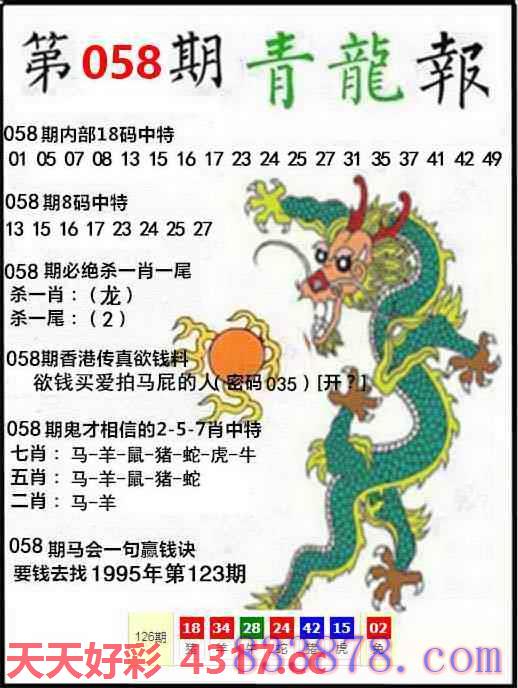 第058期青龍報
058期内部18码中特
01 05 07 08 13 15 16 17 23 24 25 27 31 35 37 41 42 49
058期8码中特
13 15 16 17 23 24 25 27
058期必绝杀一肖一尾
杀一肖：(龙)
杀一尾：(2)
058期香港传真欲钱料
欲钱买爱拍马屁的人(密码035)[开？]
058期鬼才相信的2-5-7肖中特
七肖：马-羊-鼠-猪-蛇-虎-牛
五肖：马-羊-鼠-猪-蛇
二肖：马-羊
058期马会一句赢钱诀
要钱去找1995年第123期
126期 18 34 28 24 42 15 02
猪 羊 牛 蛇 猪 虎 兔
天天好彩 4317.cc